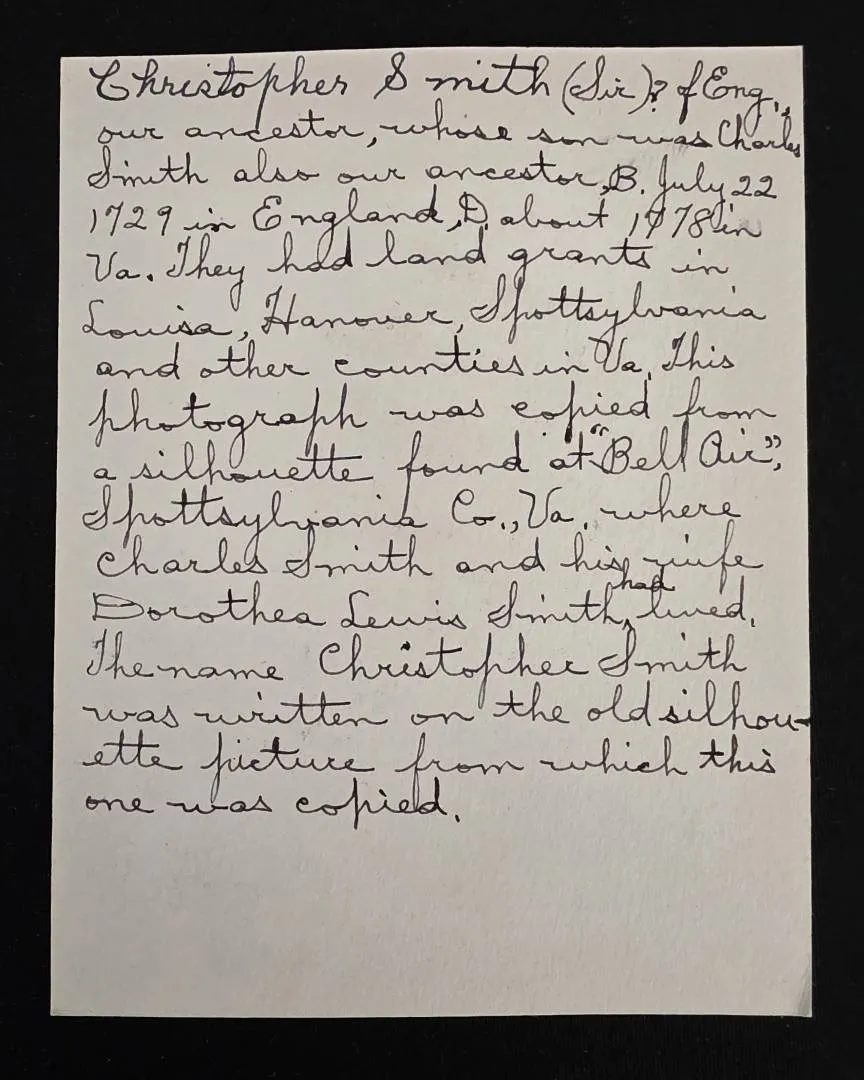 Christopher Smith (Sir)? of Eng.,
our ancestor, whose son was Charles
Smith also our ancestor, B. July 22
1729 in England, D. about 1778 in
Va. They had land grants in
Louisa, Hanover, Spottsylvania
and other counties in Va. This
photograph was copied from
a silhouette found at "Bell Air",
Spottsylvania Co., Va. where
Charles Smith and his wife
Dorothea Lewis Smith, had lived.
The name Christopher Smith
was written on the old silhou-
ette picture from which this
one was copied.